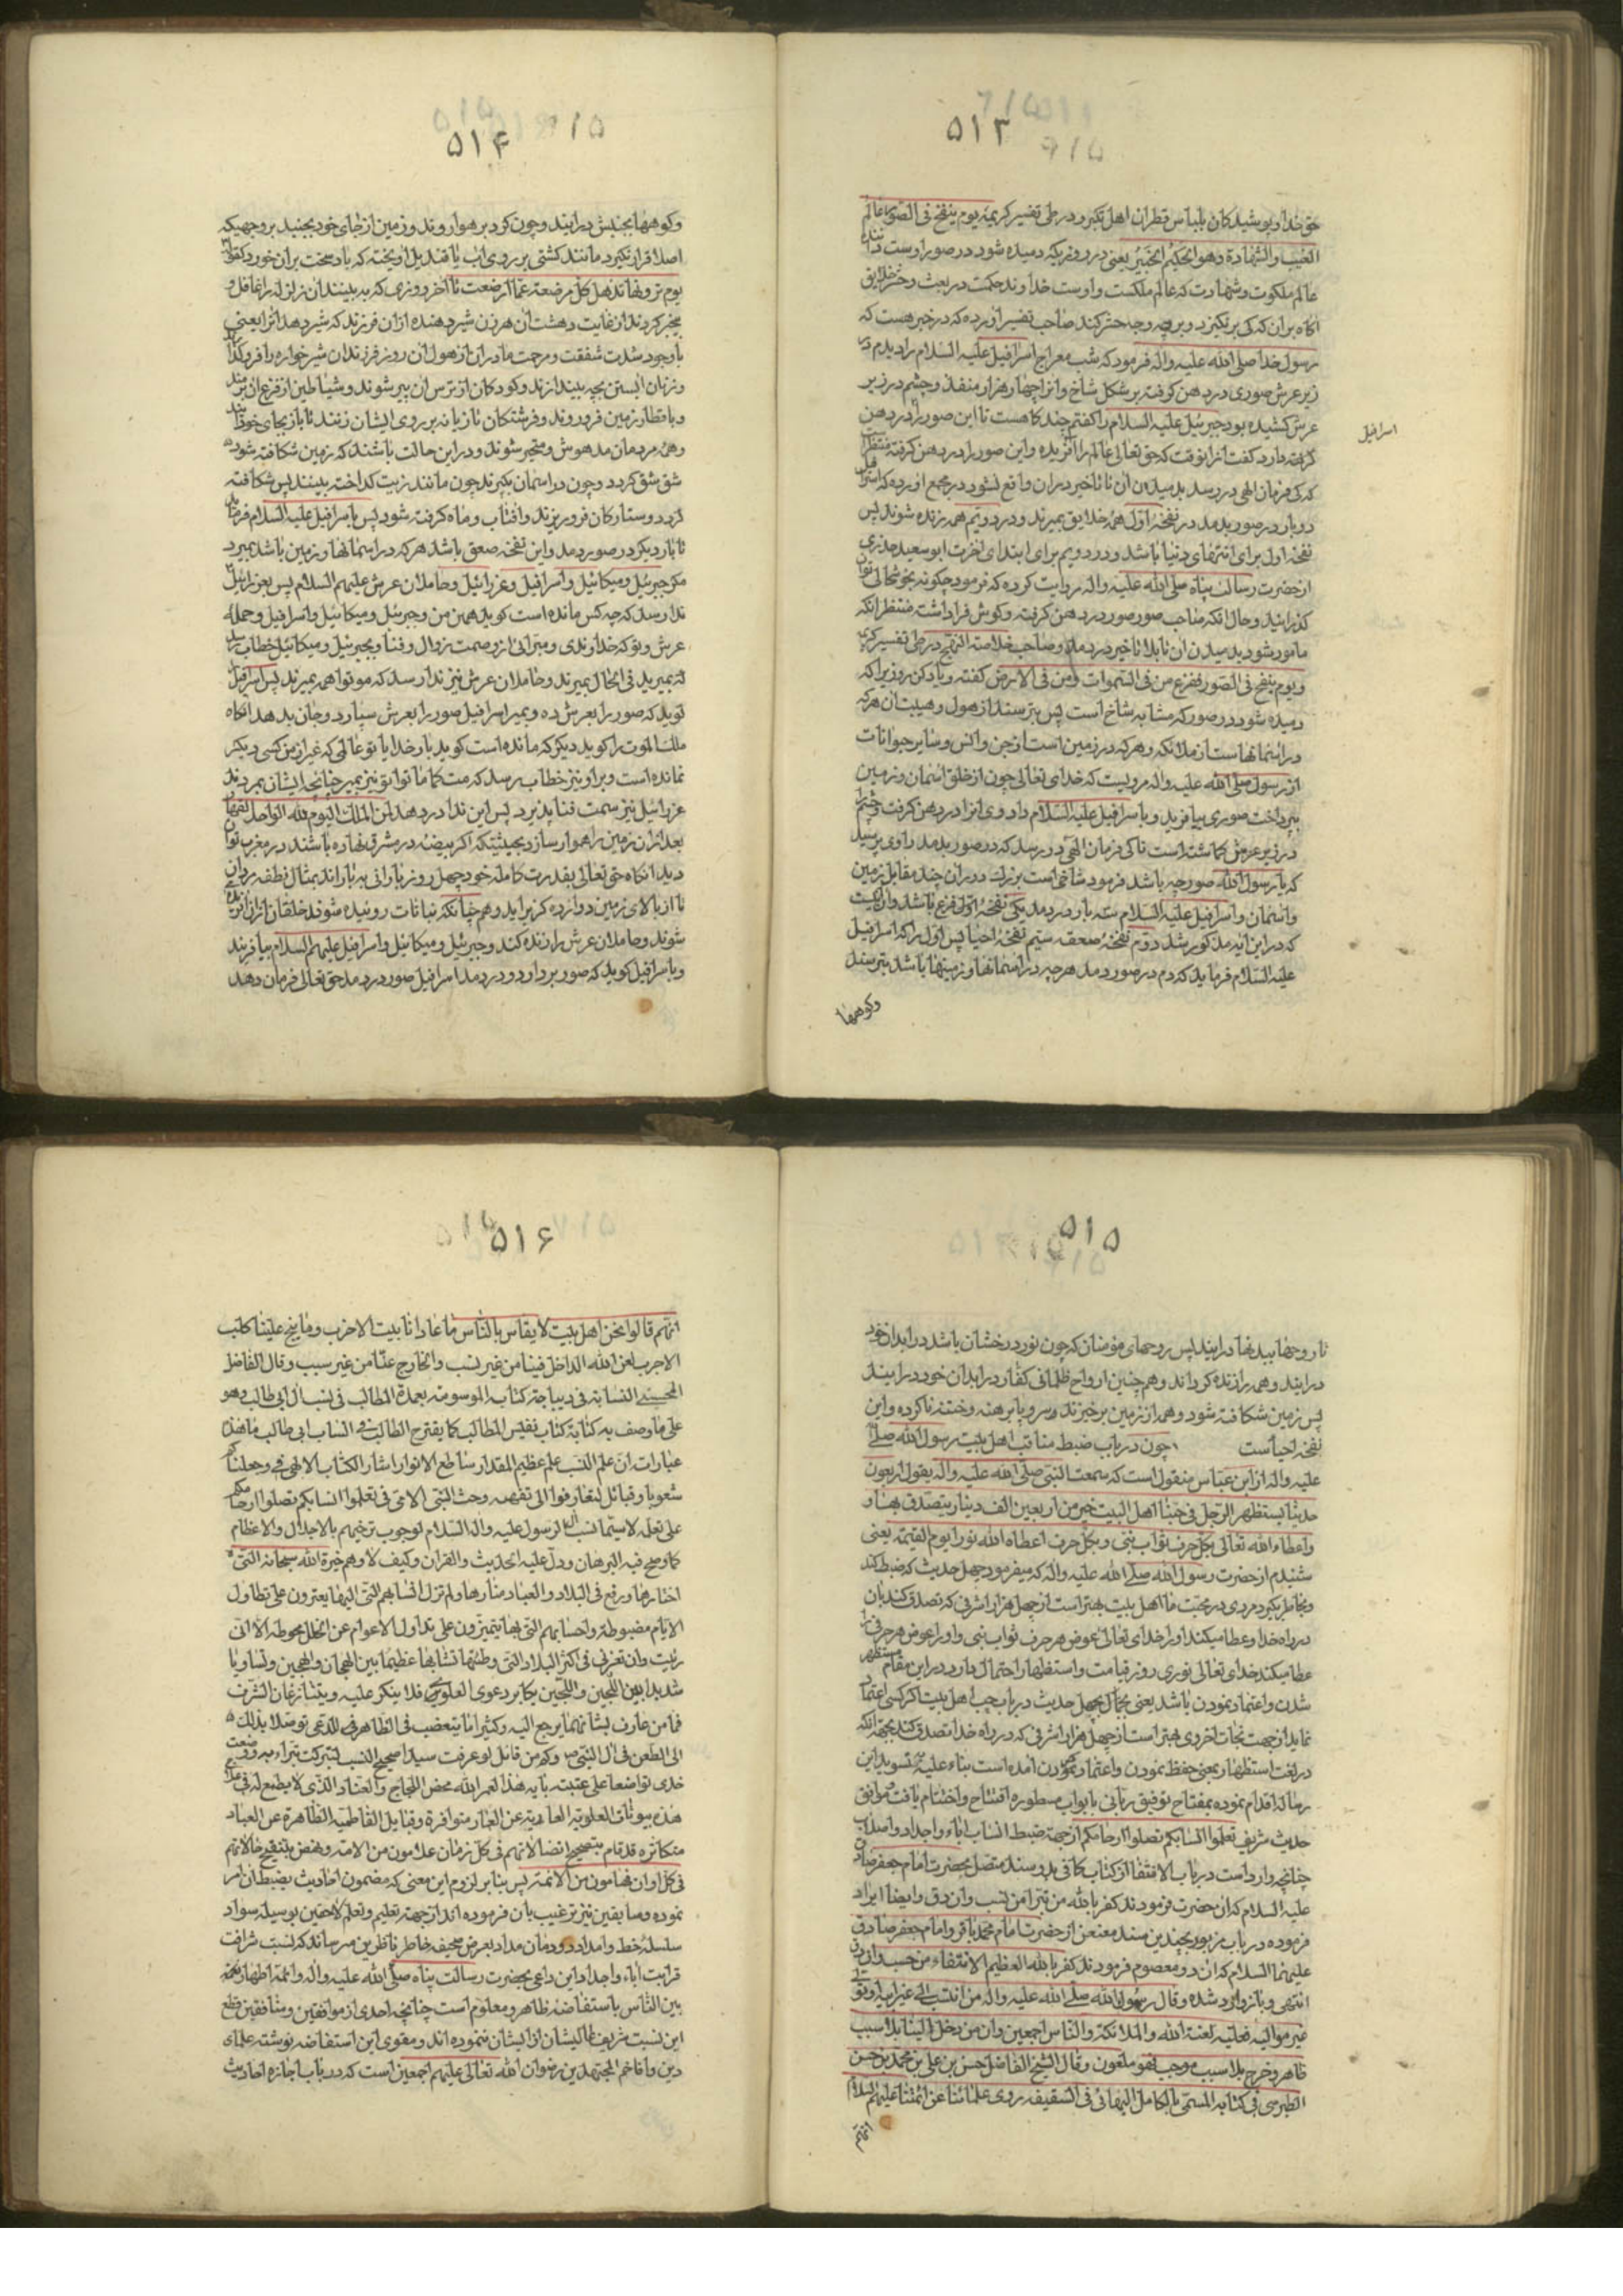 ۵۱۳
حق خدا و پوشیدکان بلباس قطران اهل تکبر و در طی تفسیر کریمه یوم ینفخ فی الصور عالم
الغیب والشهادة وهو الحکیم الخبیر یعنی در روزیکه دمیده شود در صور اوست داننده
عالم ملکوت و شهادت که عالم ملکست و اوست خداوند حکمت در بعث و حشر خلایق
اکاه بران که کی برنکیزد و برچه وجه حشر کند صاحب تفسیر اورده که در خبر هست که
رسول خدا صلی الله علیه واله فرمود که شب معراج اسرافیل علیه السلام را دیدم در
زیر عرش صوری در دهن کرفته بر شکل شاخ و انرا چهار هزار منفذ و چشم در زیر
عرش کشیده بود جبرئیل علیه السلام را کفتم چند کاهست تا این صور را در دهن
اسرافیل
کرفته دارد کفت ازانوقت که حق تعالی عالم را آفریده و این صور را در دهن کرفته منتظر است
که کی فرمان الهی در رسد بدمیدن ان تا تاخیر دران واقع نشود در مجمع اورده که اسرافیل
دو بار در صور بدمد در نفخهٔ اول همه خلایق بمیرند و در دویم همه زنده شوند پس
نفخه اول برای انتهای دنیا باشد و در دویم برای ابتدای اخرت ابو سعید خدری
از حضرت رسالت پناه صلی الله علیه واله روایت کرده که فرمود چکونه بخوشحالی توان
کذرانید و حال انکه صاحب صور صور در دهن کرفته و کوش فرا داشته منتظر انکه
مامور شود بدمیدن ان تا بلا تاخیر در دمد و صاحب خلاصة المنهج در طی تفسیر کریمه
ویوم ینفخ فی الصور ففزع من فی السموات ومن فی الارض کفته و یاد کن روزیرا که
دمیده شود در صور که مشابه شاخ است پس بترسند از هول و هیبت ان هر که
در اسمانهاست از ملائکه و هر که در زمین است از جن و انس و سایر حیوانات
از رسول صلی الله علیه واله مرویست که خدای تعالی چون از خلق اسمان و زمین
بپرداخت صوری بیافرید و باسرافیل علیه السلام داد و وی انرا در دهن کرفت و چشم
در زیر عرش کماشته است تا کی فرمان الهی در رسد که در صور بدمد راوی پرسید
که یا رسول الله صور چه باشد فرمود شاخی است بزرك دوران چند مقابل زمین
و اسمان و اسرافیل علیه السلام سه بار در دمد یکی نفخهٔ اولی فزع باشد و ان انست
که در این ایه مذکور شد دوم نفخهٔ صعقه سیم نفخهٔ احیا پس اول را که اسرافیل
علیه السلام فرماید که دم در صور دمد هر چه در اسمانها و زمینها باشد بترسند
وکوهها
۵۱۴
وکوهها بجنبش درایند و چون کرد بر هوا روند و زمین از جای خود بجنبد بر وجهیکه
اصلا قرار نکیرد مانند کشتی بر روی اب یا قندیل اویخته که باد سخت بران خورد کقوله تعالی
یوم ترونها تذهل کل مرضعة عما ارضعت تا اخر روزی که به بینند ان زلزله را غافل و
بیخبر کردند از غایت دهشت ان هر زن شیر دهنده ازان فرزند که شیر دهد انرا یعنی
باوجود شدت شفقت و مرحمت مادران از هول ان روز فرزندان شیر خواره را فروکذارند
و زنان ابستن بچه بیندازند و کودکان از ترس ان پیر شوند و شیاطین از فزع ان برمند
و باقطار زمین فرو روند و فرشتکان تازیانه بر روی ایشان زنند تا باز بجای خود ایند
و همه مردمان مدهوش و متحیر شوند و در این حالت باشند که زمین شکافته شود و
شق شق کردد و چون در اسمان بنکرند چون مانند زیت کداخته ببینند پس شکافته
کردد و ستارکان فرو ریزند و افتاب و ماه کرفته شود پس باسرافیل علیه السلام فرماید
تا بار دیکر در صور دمد و این نفخه صعق باشد هر که در اسمانها و زمین باشد بمیرد
مکر جبرئیل و میکائیل و اسرافیل و عزرائیل و حاملان عرش علیهم السلام پس بعزرائیل
ندا رسد که چه کس مانده است کوید همین من و جبرئیل و میکائیل و اسرافیل و حملهٔ
عرش و تو که خداوندی و مبرائی از وصمت زوال و فنا و بجبرئیل و میکائیل خطاب رسد
که بمیرید فی الحال بمیرند و حاملان عرش نیز ندا رسد که موتوا همه بمیرند پس اسرافیل
کوید که صور را بعرش ده و بمیر اسرافیل صور را بعرش سپارد و جان بدهد انکاه
ملک الموت را کوید دیکر که مانده است کوید بار خدایا تو عالمی که غیر از من کسی دیکر
نمانده است و براو نیز خطاب رسد که مت کما ماتوا تو نیز بمیر چنانچه ایشان بمردند
عزرائیل نیز سمت فنا پذیرد پس این ندا در دهد لمن الملك الیوم لله الواحد القهار
بعد ازان زمین را هموار سازد بحیثیتکه اکر بیضه در مشرق نهاده باشند در مغرب توان
دید انکاه حق تعالی بقدرت کامله خود چهل روز بارانی بباراند بمثال نطفه مردان
تا از بالای زمین دوازده کز براید و همچنانکه نباتات روئیده شوند خلقان ازان زنده
شوند و حاملان عرش را زنده کند و جبرئیل و میکائیل و اسرافیل علیهم السلام بیافریند
و باسرافیل کوید که صور بردار و در دمد اسرافیل صور در دمد حق تعالی فرمان دهد
۵۱۵
تا روحها ببدنها درایند پس روحهای مؤمنان که چون نور درخشان باشد در ابدان خود
درایند و همه را زنده کرداند و همچنین ارواح ظلمانی کفار در ابدان خود درایند
پس زمین شکافته شود و همه از زمین برخیزند و سر و پا برهنه و ختنه ناکرده و این
نفخه احیاست چون در باب ضبط مناقب اهل بیت رسول الله صلی الله
علیه واله از ابن عباس منقول است که سمعت النبی صلی الله علیه واله یقول اربعون
حدیثا یستظهر الرجل فی حبنا اهل البیت خیر من اربعین الف دینار یتصدق بها و
واعطاه الله تعالی بکل حرف ثواب نبی وبکل حرف اعطاه الله نورا یوم القیمة یعنی
شنیدم از حضرت رسول الله صلی الله علیه واله که میفرمود چهل حدیث که ضبط کند
و بخاطر بکیرد مردی در محبت ما اهل بیت بهتر است از چهل هزار اشرفی که تصدق کند بان
در راه خدا و عطا میکند او را خدای تعالی عوض هر حرف ثواب نبی و او را عوض هر حرف
عطا میکند خدای تعالی نوری روز قیامت و استظهار احتمال دارد در این مقام مستظهر
شدن و اعتماد نمودن باشد یعنی بچهل حدیث در باب حب اهل بیت اکر کسی اعتماد
نماید از جهت نجات اخروی بهتر است از چهل هزار اشرفی که در راه خدا تصدق کند بجهة انکه
در لغت استظهار بمعنی حفظ نمودن و اعتماد نمودن امده است بناء علیه بتسوید این
رساله اقدام نموده بمفتاح توفیق ربانی بابواب مسطوره افتتاح و اختتام یافت موافق
حدیث شریف تعلموا انسابکم تصلوا ارحامکم از جهة ضبط انساب اباء و اجداد و اصلاب
چنانچه وارد است در باب الانتفا از کتاب کافی بدو سند متصل بحضرت امام جعفر صادق
علیه السلام که ان حضرت فرمودند کفر بالله من تبرا من نسب وان دق و ایضا ایراد
فرموده در باب مزبور بچندین سند معنعن از حضرت امام محمد باقر و امام جعفر صادق
علیهما السلام که ان دو معصوم فرمودند کفر بالله العظیم الانتفاء من حسب وان دق
انتهی و باز وارد شده وقال رسول الله صلی الله علیه واله من انتسب الی غیر ابیه او تولی
غیر موالیه فعلیه لعنة الله والملائکة والناس اجمعین وان من دخل الینا بلا سبب
ظاهر وخرج بلا سبب موجب فهو ملعون وقال الشیخ الفاضل حسن بن علی بن محمد بن حسن
الطبرسی فی کتابه المسمی بالکامل البهائی فی السقیفه روی علمائنا عن ائمتنا علیهم السلام
انهم
۵۱۶
انهم قالوا نحن اهل بیت لا یقاس بالناس ما عادانا بیت الا خرب وما ینبح علینا کلب
الا جرب لعن الله الداخل فینا من غیر نسب والخارج عنا من غیر سبب وقال الفاضل
الحسینی النسابة فی دیباجة کتابه الموسومة بعمدة المطالب فی نسب ال ابی طالب وهو
علی ما وصف به کتابة کتاب نفیس المطالب کما یقترح الطالب فی انساب ابی طالب ما هذا
عبارات ان علم النسب علم عظیم المقدار ساطع الانوار اشار الکتاب الالهی فی وجعلناکم
شعوبا وقبائل لتعارفوا الی تفهمه وحث النبی الامی فی تعلموا انسابکم تصلوا ارحامکم
علی تعلمه لاسیما نسب ال الرسول علیه واله السلام لوجوب ترخیمهم بالاجلال والاعظام
کما وضح فیه البرهان ودل علیه الحدیث والقران وکیف لا وهم خیرة الله سبحانه التی
اختارها ورفع فی البلاد والعباد منارها ولم تزل انسابهم التی الیها یعتزون علی تطاول
الایام مضبوطة واحسابهم التی بها یتمیزون علی تداول الاعوام عن الخلل محوطة الا انی
رئیت وان تغربی فی اکثر البلاد التی وطئتها تشابها عظیما بین الهجان والهجین وتساویا
شدیدا بین اللجین واللجین یکابر دعوی العلوی فلا ینکر علیه ویتنازعان الشرف
فما من عارف بشانهما یرجع الیه وکثیرا ما یتعصب فی الظاهر فی للدعی توصلا بذلك
الی الطعن فی ال النبی وکم من قائل لو عرفت سیدا صحیح النسب لتبرکت بتراب ووضعت
خدی تواضعا علی عتبته بابه هذا لعمر الله محض اللجاج والعناد الذی لا یطمع له فی صلاح
هذه بیوتات العلویة العاریة عن الغبار متوافرة وقبایل الفاطمیة الظاهرة عن العباد
متکاثرة قد قام بتصحیح اتصالاتهم فی کل زمان علامون من الامة ونهض بتنقیح حالاتهم
فی کل اوان فهامون من الائمة پس بنا بر لزوم این معنی که مضمون احادیث بضبط ان امر
نموده و سابقین نیز ترغیب بان فرموده اند از جهة تعلیم و تعلم لاحقین بوسیله سواد
سلسلهٔ خط و امداد دودمان مداد بعرض صحیفه خاطر ناظرین میرساند که نسبت شرافت
قرابت اباء و اجداد این داعی بحضرت رسالت پناه صلی الله علیه واله و ائمة اطهار
بین الناس باستفاضه ظاهر و معلوم است چنانچه احدی از موافقین و منافقین قطع
این نسبت شریف عالیشان از ایشان ننموده اند و مقوی این استفاضه نوشته علمای
دین و افاخم المجتهدین رضوان الله تعالی علیهم اجمعین است که در باب اجازه احادیث